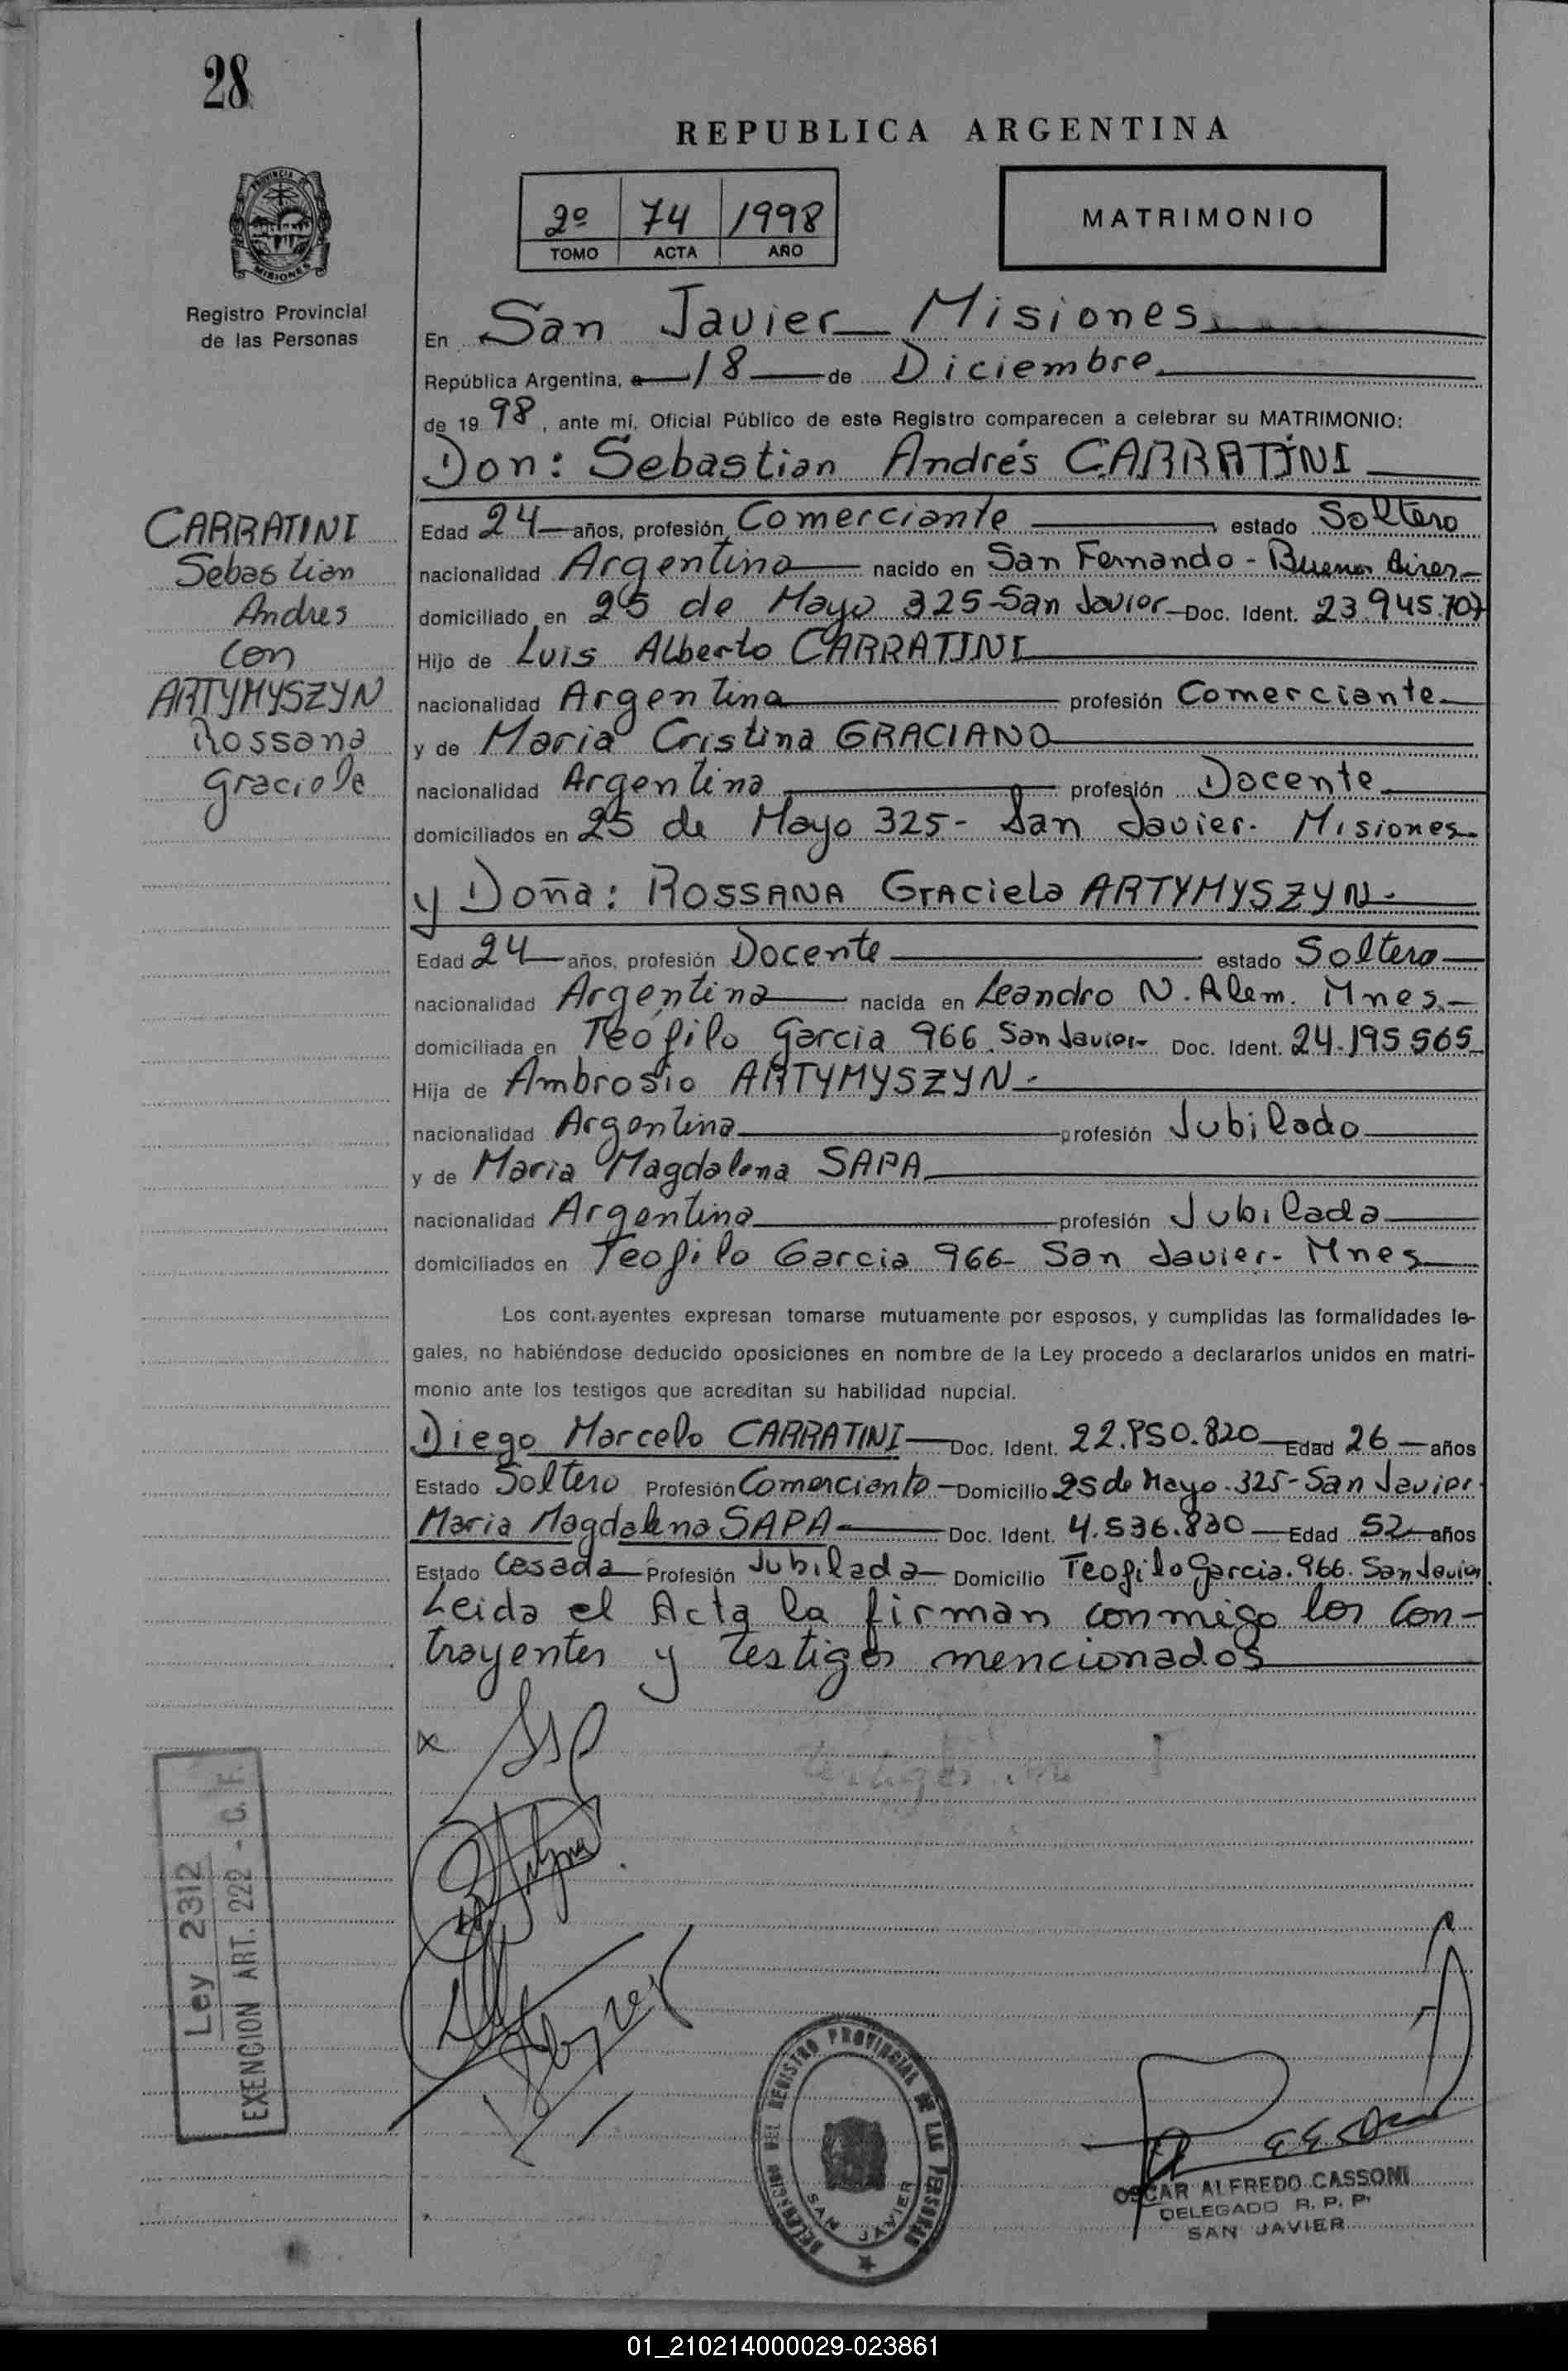 28
REPUBLICA ARGENTINA
2º 74 1998
TOMO ACTA AÑO
MATRIMONIO
PROVINCIA DE
MISIONES
Registro Provincial
de las Personas
En San Javier Misiones
República Argentina, a 18 de Diciembre
de 19 98, ante mí, Oficial Público de este Registro comparecen a celebrar su MATRIMONIO:
Don: Sebastian Andrés CARRATINI
CARRATINI
Sebastian
Andres
Con
ARTYMYSZYN
Rossana
Graciela
Edad 24 años, profesión Comerciante estado Soltero
nacionalidad Argentina nacido en San Fernando - Buenos Aires
domiciliado en 25 de Mayo 325-San Javier Doc. Ident. 23.945.707
Hijo de Luis Alberto CARRATINI
nacionalidad Argentina profesión Comerciante
y de Maria Cristina GRACIANO
nacionalidad Argentina profesión Docente
domiciliados en 25 de Mayo 325- San Javier. Misiones
y Doña: ROSSANA Graciela ARTYMYSZYN.
Edad 24 años, profesión Docente estado Soltera
nacionalidad Argentina nacida en Leandro N. Alem. Mnes.
domiciliada en Teófilo Garcia 966. San Javier- Doc. Ident. 24.195.565
Hija de Ambrosio ARTYMYSZYN.
nacionalidad Argentina profesión Jubilado
y de Maria Magdalena SAPA
nacionalidad Argentina profesión Jubilada
domiciliados en Teofilo Garcia 966- San Javier- Mnes
Los contrayentes expresan tomarse mutuamente por esposos, y cumplidas las formalidades le-
gales, no habiéndose deducido oposiciones en nombre de la Ley procedo a declararlos unidos en matri-
monio ante los testigos que acreditan su habilidad nupcial.
Diego Marcelo CARRATINI Doc. Ident. 22.850.820 Edad 26 años
Estado Soltero Profesión Comerciante Domicilio 25 de Mayo. 325-San Javier
Maria Magdalena SAPA Doc. Ident. 4.536.830 Edad 52 años
Estado Casada Profesión Jubilada Domicilio Teofilo Garcia. 966. San Javier
Leida el Acta la firman conmigo los con-
trayentes y testigos mencionados
Ley 2312
EXENCION ART. 222 - C. F.
DELEGACION DEL REGISTRO PROVINCIAL DE LAS PERSONAS
SAN JAVIER
OSCAR ALFREDO CASSONI
DELEGADO R. P. P.
SAN JAVIER
01_210214000029-023861